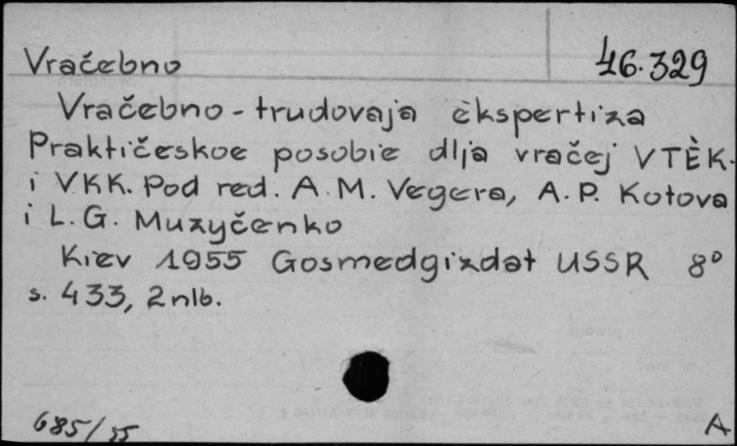 Vračebno 46.329
Vračebno-trudovaja èkspertiza
Praktičeskoe posobie dlja vračej VTÈK.
i VKK. Pod red. A.M. Vegera, A.P. Kotova
i L.G. Muzyčenko
Kiev 1955 Gosmedgizdat USSR 8°
s. 433, 2nlb.
685/55 A